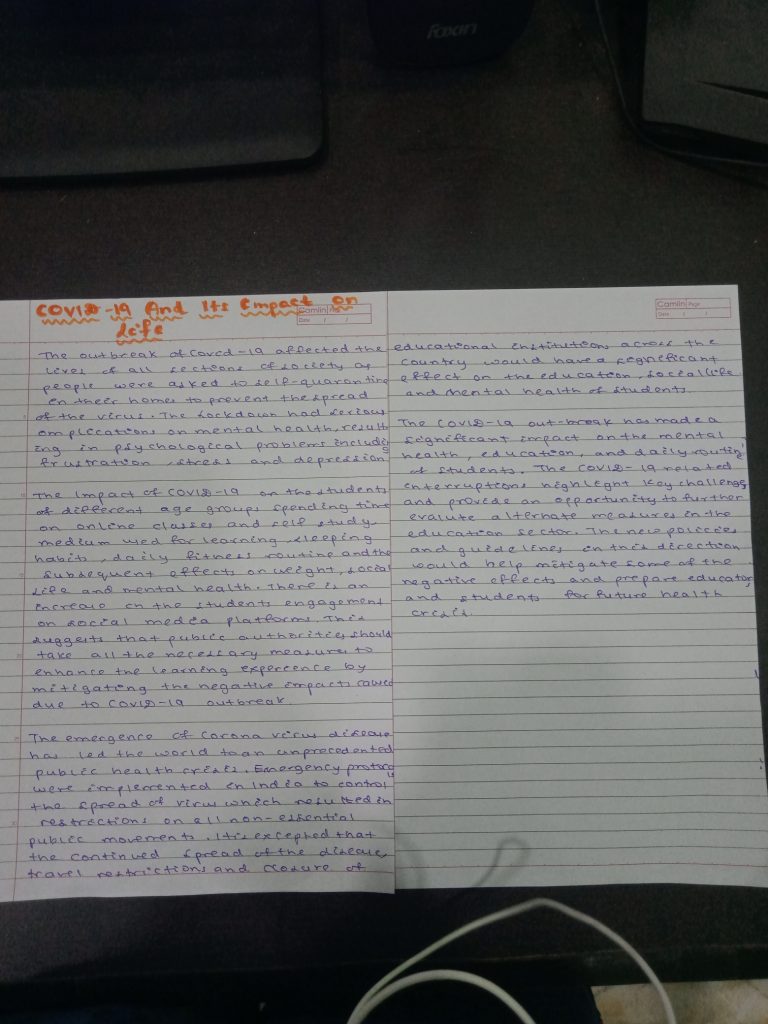 Foxin
COVID-19 And Its Impact on
Life
Camlin Page
Date / /
The outbreak of Covid-19 affected the
lives of all sections of society as
people were asked to self-quarantine
in their homes to prevent the spread
of the virus. The lockdown had serious
implications on mental health, result
ing in psychological problems including
frustration, stress and depression
The Impact of COVID-19 on the students
of different age groups spending time
on online classes and self study
medium used for learning, sleeping
habit, daily fitness routine and the
subsequent effects on weight, social
life and mental health. There is an
increase in the students engagement
on social media platforms. This
suggests that public authorities should
take all the necessary measures to
enhance the learning experience by
mitigating the negative impacts caused
due to COVID-19 outbreak.
The emergence of Corona virus disease
has led the world to an unprecedented
public health crisis. Emergency protocols
were implemented in India to control
the spread of virus which resulted in
restrictions on all non-essential
public movements. It is excepted that
the continued spread of the disease,
travel restrictions and closure of
Camlin Page
Date / /
educational institutions across the
country would have a significant
effect on the education, social life
and mental health of students.
The COVID-19 out-break has made a
significant impact on the mental
health, education, and daily routine
of students. The COVID-19 related
interruptions highlight key challenges
and provide an opportunity to further
evalute alternate measures in the
education sector. The new policies
and guidelines in this direction
would help mitigate some of the
negative effects and prepare educators
and students for future health
crisis.